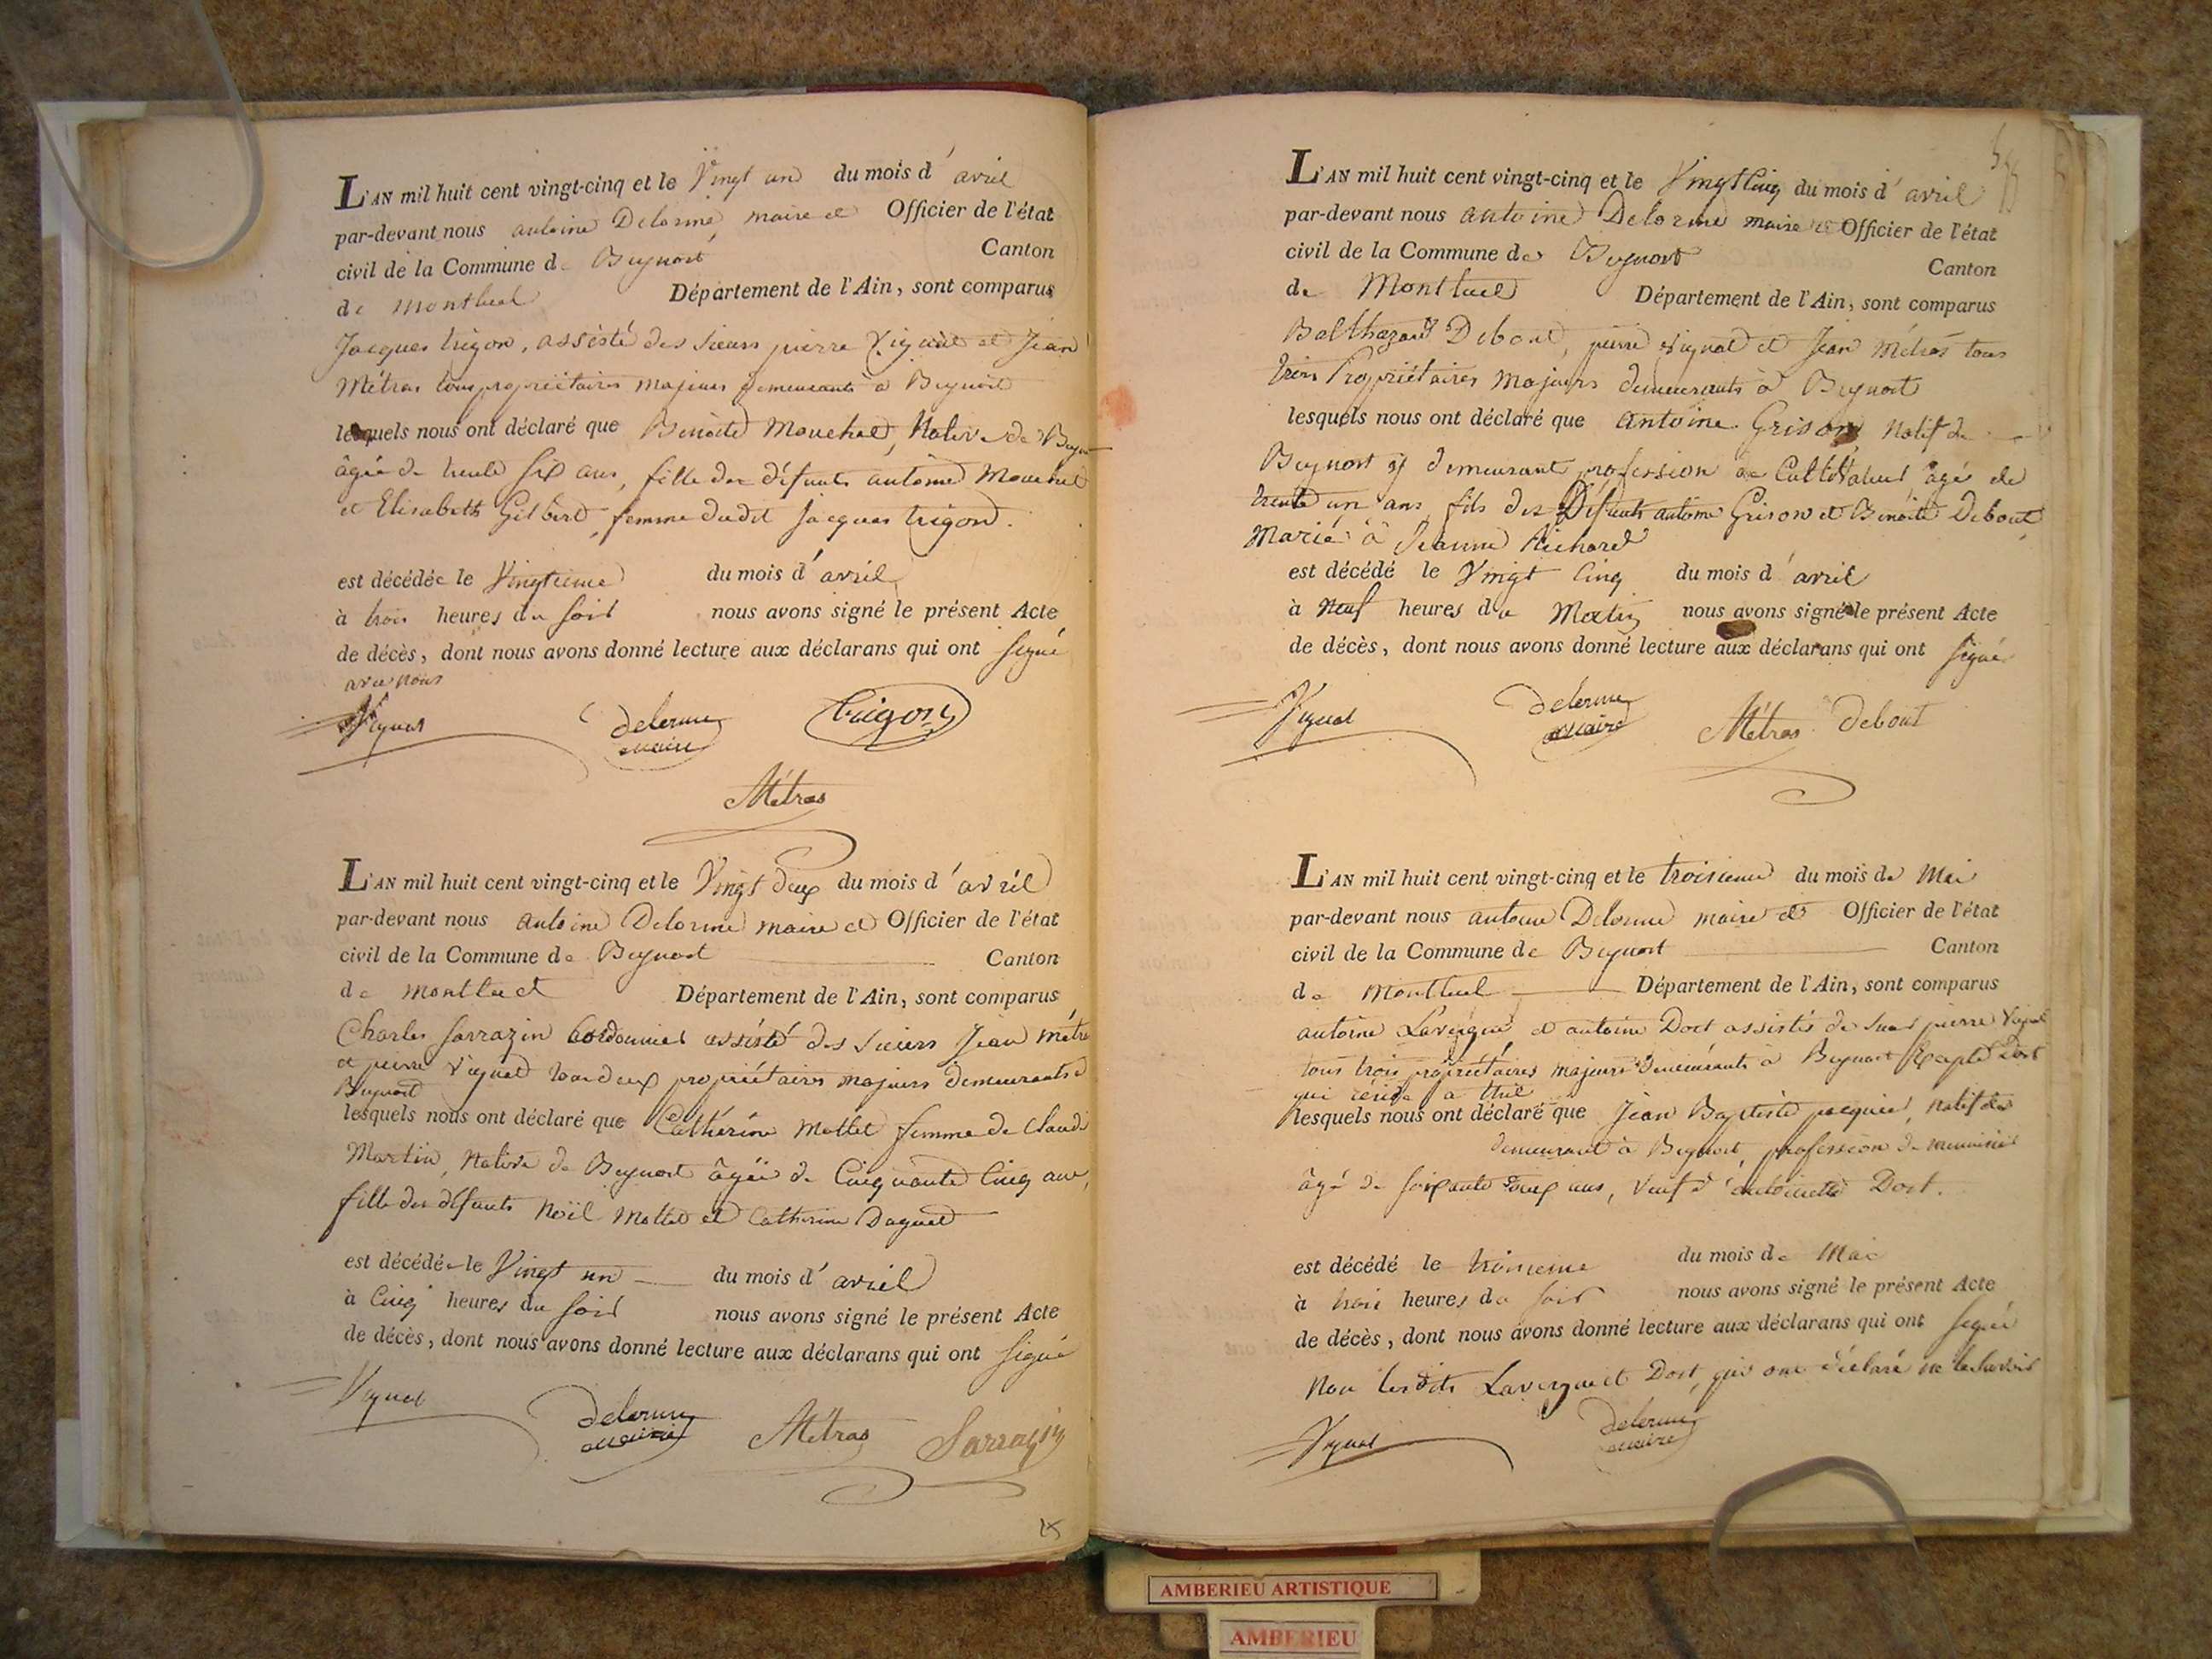 L'AN mil huit cent vingt-cinq et le Vingt un du mois d'avril
par-devant nous antoine Delorme, maire et Officier de l'état
civil de la Commune de Beynost Canton
de Montluel Département de l'Ain, sont comparus
Jacques trigon, assisté des sieurs pierre Vignat et Jean
Métras tous propriétaires majeurs demeurants à Beynost
lesquels nous ont déclaré que Benoite Mouchet, Native de Beyn
âgée de trente six ans, fille des défunts antoine Mouchet
et Elisabeth Gilbert, femme dudit Jacques trigon.
est décédée le Vingtieme du mois d'avril
à trois heures du soir nous avons signé le présent Acte
de décès, dont nous avons donné lecture aux déclarans qui ont signé
avec nous
Vignat delorme maire trigon
Métras
L'AN mil huit cent vingt-cinq et le Vingt deux du mois d'avril
par-devant nous antoine Delorme maire et Officier de l'état
civil de la Commune de Beynost Canton
de Montluel Département de l'Ain, sont comparus
Charles Sarrazin Cordonnier assisté des sieurs Jean Métra
et pierre Vignat tous deux propriétaires majeurs demeurants à
Beynost
lesquels nous ont déclaré que Cathérine Mollet femme de Claude
Martin, Native de Beynost âgée de Cinquante Cinq ans,
fille des défunts Noël Mollet et Catherine Daguet
est décédée le Vingt un du mois d'avril
à Cinq heures du soir nous avons signé le présent Acte
de décès, dont nous avons donné lecture aux déclarans qui ont signé
Vignat delorme maire Métras Sarrazin
L'AN mil huit cent vingt-cinq et le Vingt Cinq du mois d'avril
par-devant nous antoine Delorme maire et Officier de l'état
civil de la Commune de Beynost Canton
de Montluel Département de l'Ain, sont comparus
Balthazard Debout, pierre Vignat et Jean Métras tous
trois Propriétaires majeurs demeurants à Beynost
lesquels nous ont déclaré que antoine Grison, Natif de
Beynost y demeurant profession de Cultivateur âgé de
trente un ans fils des Défunts antoine Grison et Benoite Debout
Marié à Jeanne Richard
est décédé le Vingt Cinq du mois d'avril
à Neuf heures du Matin nous avons signé le présent Acte
de décès, dont nous avons donné lecture aux déclarans qui ont signé
Vignat delorme maire Métras debout
L'AN mil huit cent vingt-cinq et le troisieme du mois de Mai
par-devant nous antoine Delorme maire et Officier de l'état
civil de la Commune de Beynost Canton
de Montluel Département de l'Ain, sont comparus
antoine Lavergne et antoine Dost assistés de pierre Vignat
tous trois propriétaires majeurs demeurants à Beynost Excepté Dost
qui réside à thil
lesquels nous ont déclaré que Jean Baptiste jacquier, Natif de
demeurant à Beynost, profession de
âgé de soixante ans, Veuf d'antoinette Dost.
est décédé le troisieme du mois de Mai
à trois heures du soir nous avons signé le présent Acte
de décès, dont nous avons donné lecture aux déclarans qui ont signé
Non lesdits Lavergne et Dost, qui ont déclaré ne le savoir
Vignat delorme maire
AMBERIEU ARTISTIQUE
AMBERIEU